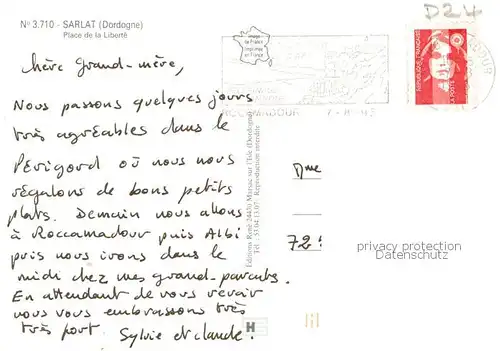 N° 3.710 - SARLAT (Dordogne)
Place de la Liberté
D24
Chère Grand-mère,
Nous passons quelques jours
très agréables dans le
Périgord où nous nous
régalons de bons petits
plats. Demain nous allons
à Roccamadour puis Albi
puis nous irons dans le
midi chez mes grand-parents.
En attendant de vous revoir
nous vous embrassons très
très fort. Sylvie et claude.
Image
de France
Imprimée
en France
ROCAMADOUR
REPUBLIQUE FRANÇAISE
LA POSTE
Editions René 24430 Marsac sur l'Isle (Dordogne)
Tél. : 53.04.13.07 - Reproduction interdite
Mme
72!
protection copyright
Datenschutz
H